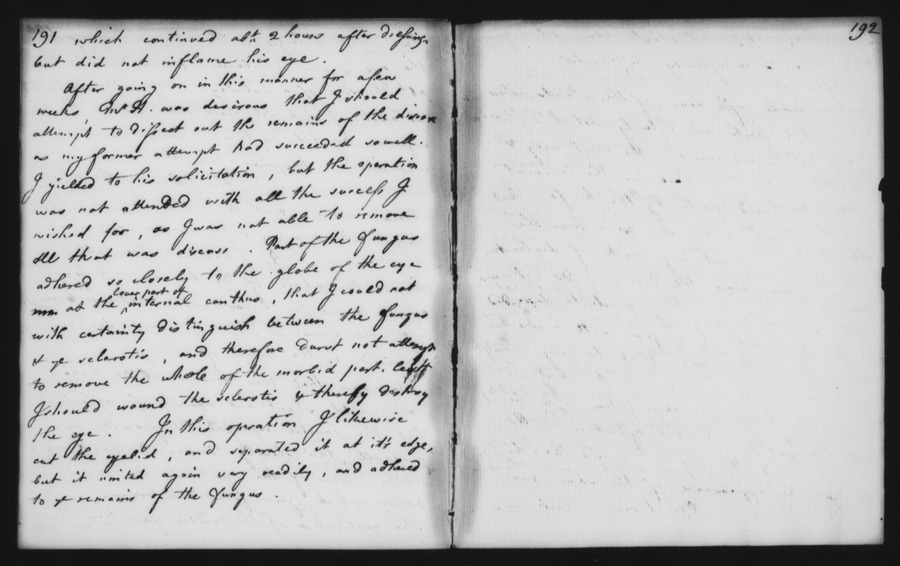 191 which continued abt. 2 hours after dressing
but did not inflame his eye.
After going on in this manner for a few
weeks, Mr. H. was desirous that I should
attempt to dissect out the remains of the disease
as my former attempt had succeeded so well.
I yielded to his solicitation, but the operation
was not attended with all the success I
wished for, as I was not able to remove
all that was disease. Part of the fungus
adhered so closely to the globe of the eye
lower part of
at the internal canthus, that I could not
with certainty distinguish between the fungus
& ye sclerotis, and therefore durst not attempt
to remove the whole of the morbid part, lest
I should wound the sclerotis & thereby destroy
the eye. In this operation I likewise
cut the eyelid, and separated it at it's edge,
but it united again very readily, and adhered
to ye remains of the fungus.
192